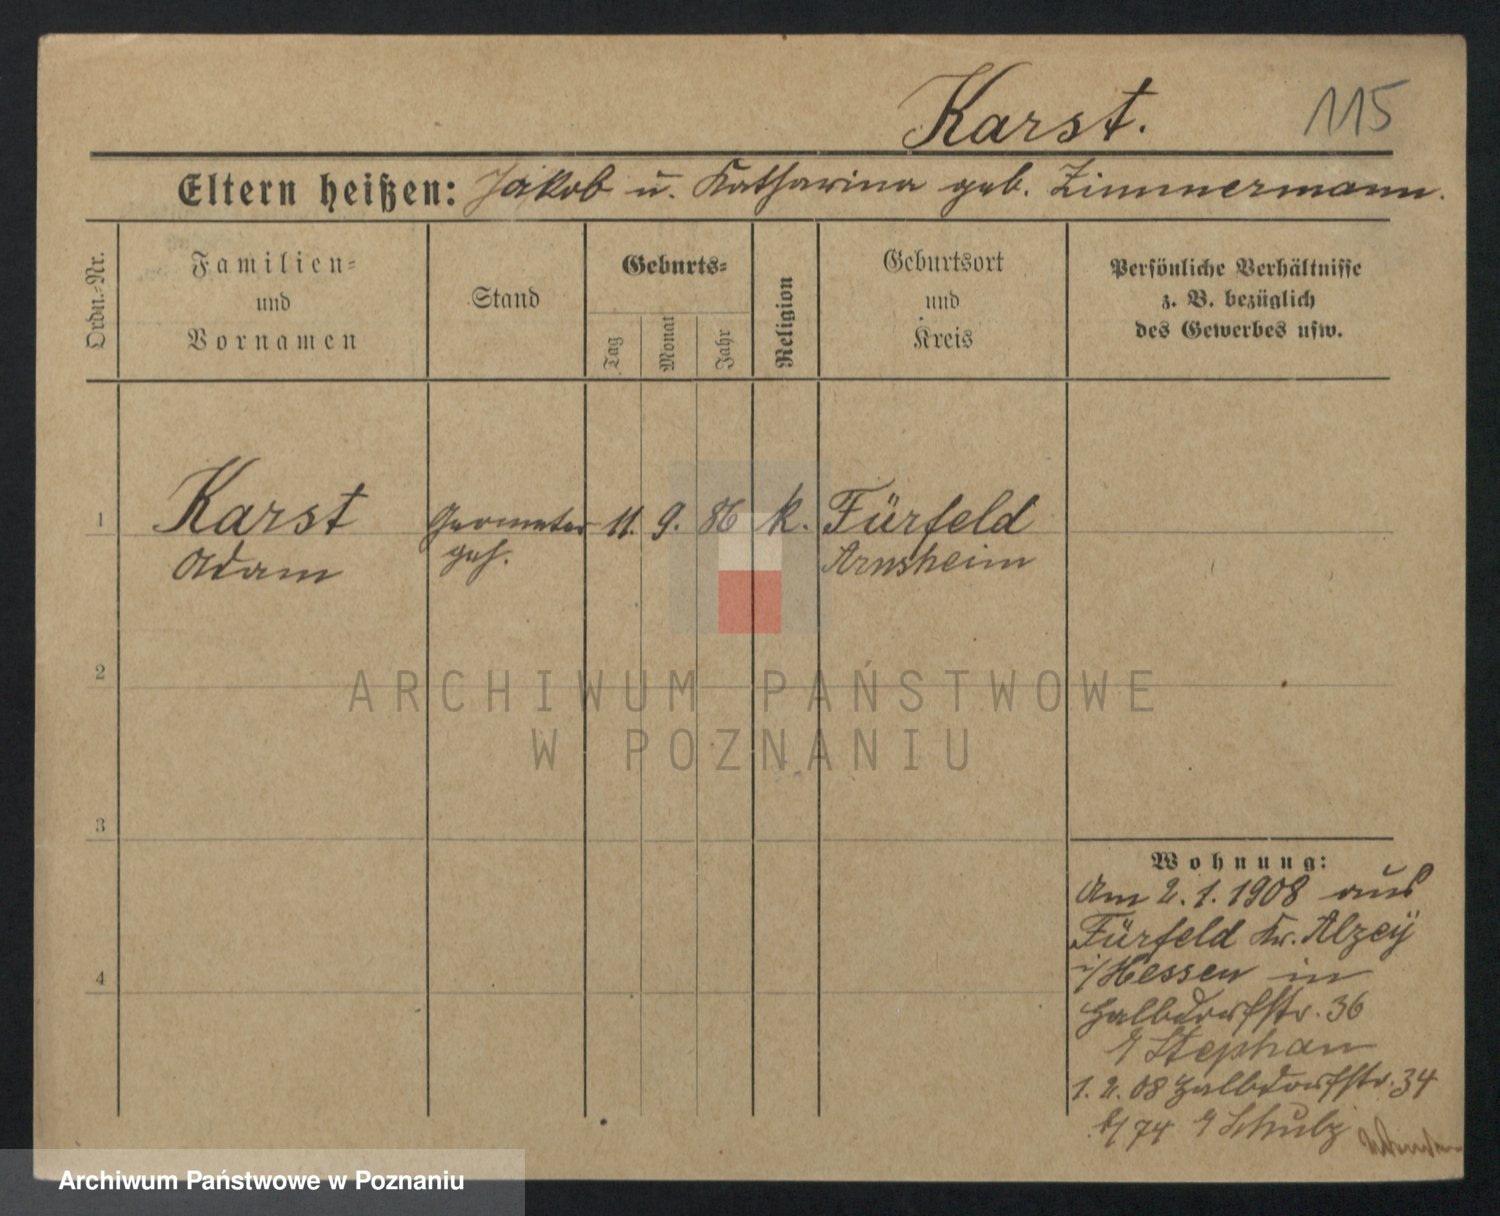 Karst.
115
Eltern heißen: Jakob u. Katharina geb. Zimmermann.
Ordn.-Nr.
Familien=
und
Vornamen
Stand
Geburts=
Tag
Monat
Jahr
Religion
Geburtsort
und
Kreis
Persönliche Verhältnisse
z. B. bezüglich
des Gewerbes usw.
1
Karst
Adam
Geometer
geh.
11. 9. 86
k.
Fürfeld
Arnsheim
2
3
4
Wohnung:
Am 2.1.1908 aus
Fürfeld Kr. Alzey
i/Hessen in
Halbdorfstr. 36
Stephan
1.2.08 Halbdorfstr. 34
b/74 Schulz
ARCHIWUM PAŃSTWOWE
W POZNANIU
Archiwum Państwowe w Poznaniu